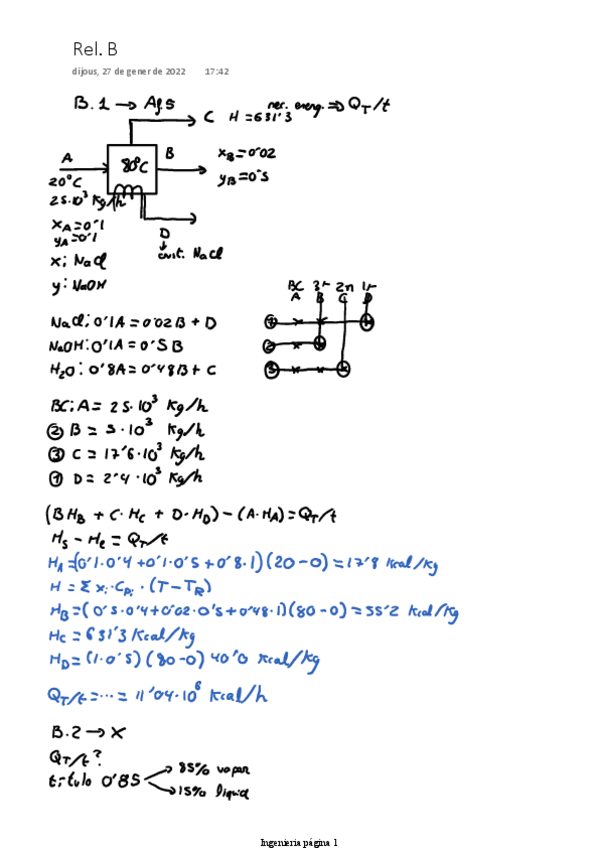 Rel. B
dijous, 27 de gener de 2022 17:42
B.1 → Ap.5
C H = 631'3
nec. energ. ⇒ QT/t
A
80ºC
B
xB = 0'02
yB = 0'5
20ºC
25·10³ Kg/h
xA = 0'1
yA = 0'1
D
↓
crist. NaCl
x: NaCl
y: NaOH
BC 3r 2n 1r
A B C D
NaCl: 0'1A = 0'02B + D
NaOH: 0'1A = 0'5B
H2O: 0'8A = 0'48B + C
①
②
③
BC: A = 25·10³ Kg/h
② B = 5·10³ Kg/h
③ C = 17'6·10³ Kg/h
① D = 2'4·10³ Kg/h
(B HB + C·HC + D·HD) - (A·HA) = QT/t
Hs - He = QT/t
HA = (0'1·0'4 + 0'1·0'5 + 0'8·1)(20-0) = 17'8 Kcal/Kg
H = Σ xi·CPi·(T-TR)
HB = (0'5·0'4 + 0'02·0'5 + 0'48·1)(80-0) = 55'2 Kcal/Kg
HC = 631'3 Kcal/Kg
HD = (1·0'5)(80-0) 40'0 Kcal/Kg
QT/t = ··· = 11'04·10⁶ Kcal/h
B.2 → X
QT/t?
título 0'85
85% vapor
15% líquid
Ingenieria página 1